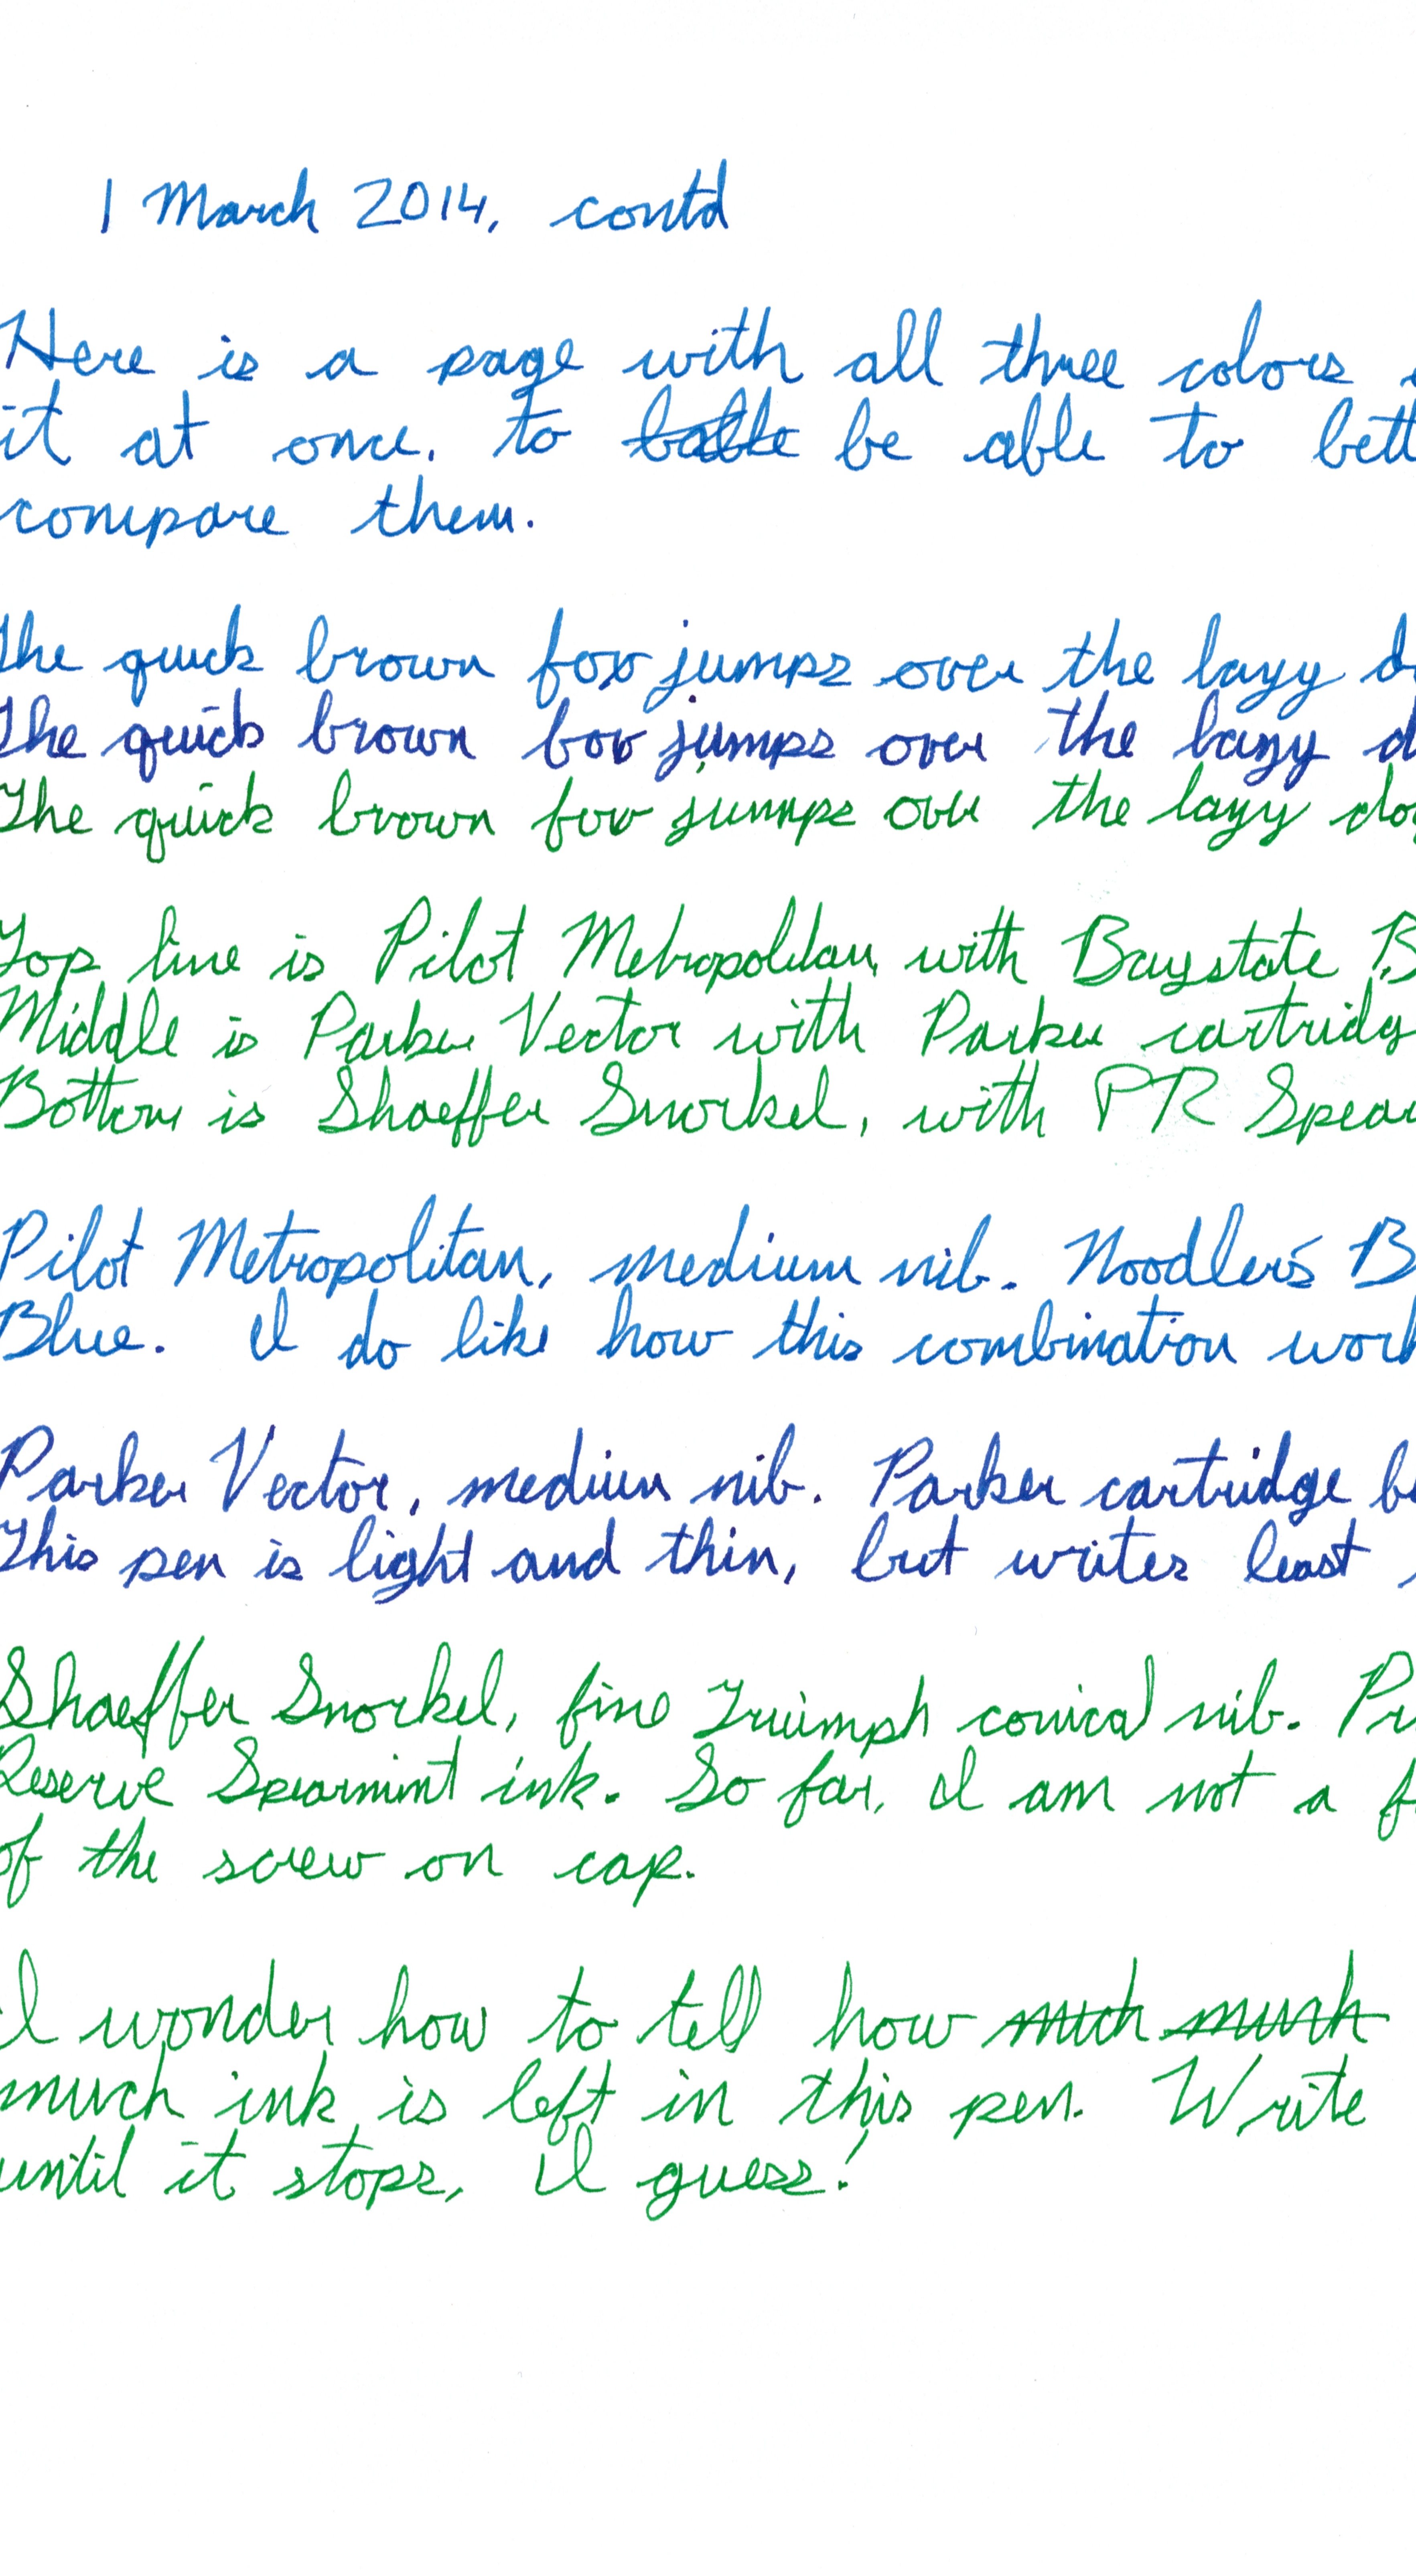 1 March 2014, contd
Here is a page with all three colors
it at once, to be able to bett
compare them.
The quick brown fox jumps over the lazy d
The quick brown fox jumps over the lazy d
The quick brown fox jumps over the lazy dog
Top line is Pilot Metropolitan, with Baystate B
Middle is Parker Vector with Parker cartridg
Bottom is Shaeffer Snorkel, with PR Spear
Pilot Metropolitan, medium nib. Noodler's B
Blue. I do like how this combination work
Parker Vector, medium nib. Parker cartridge b
This pen is light and thin, but writes least
Shaeffer Snorkel, fine Triumph conical nib. Pr
Reserve Spearmint ink. So far, I am not a f
of the screw on cap.
I wonder how to tell how much much
much ink is left in this pen. Write
until it stops, I guess!